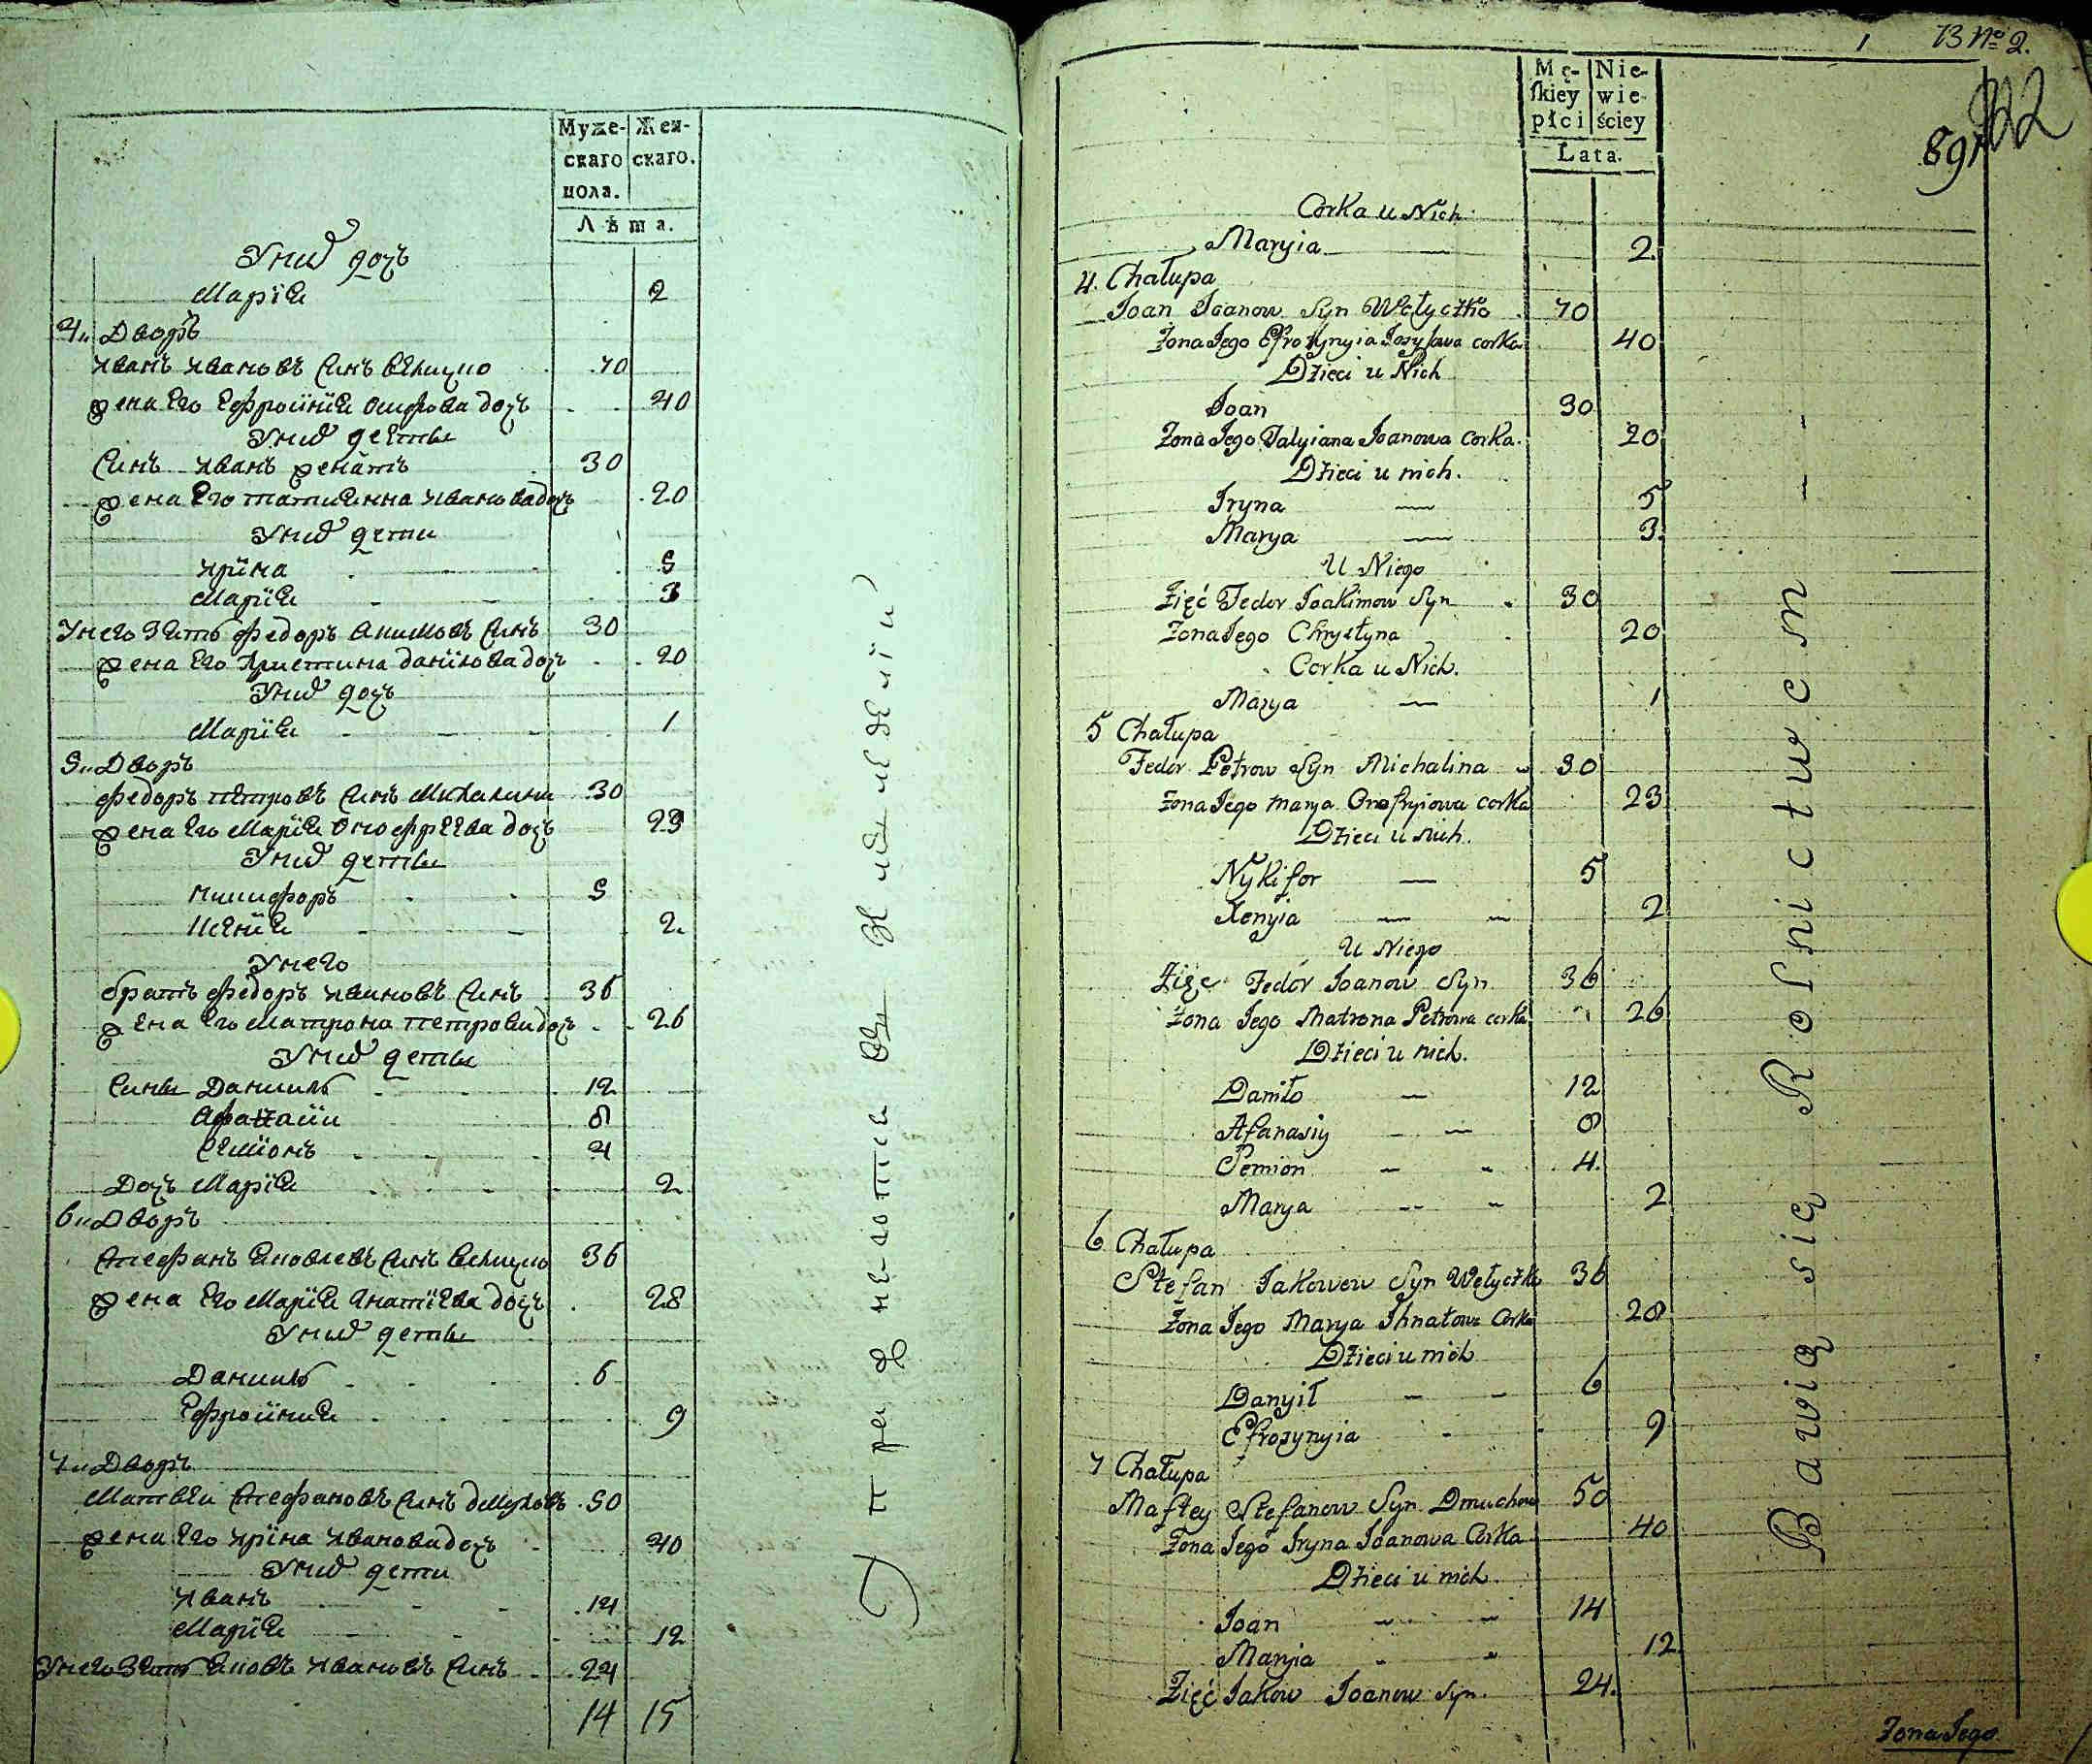 Муже- Жен-
скаго скаго.
пола.
Лѣта.
У них дочь
Марія 2
4. Дворъ
Иванъ Ивановъ синъ Величко 70
жена его Ефросинія Осифова дочь 40
У них дети
Синъ Иванъ женатъ 30
жена его Татианна Иванова дочь 20
У них дети
Ирина 5
Марія 3
У него зять Федоръ Акимовъ синъ 30
жена его Христина Данилова дочь 20
У них дочь
Марія 1
5. Дворъ
Федоръ Петровъ синъ Михалина 30
жена его Марія Онофріева дочь 23
У них дети
Никифоръ 5
Ксенія 2.
У него
братъ Федоръ Ивановъ синъ 36
жена его Матрона Петрова дочь 26
У них дети
Сини Даниилъ 12
Афанасій 8
Семіонъ 4
Дочь Марія 2
6. Дворъ
Стефанъ Яковлевъ синъ Величко 36
жена его Марія Игнатіева дочь 28
У них дети
Даниилъ 6
Ефросинія 9
7. Дворъ
Матвей Стефановъ синъ Дмуховъ 50
жена его Ирина Иванова дочь 40
У них дети
Иванъ 14
Марія 12
У него зять Яковъ Ивановъ синъ 24
14 15
1 13 No 2.
Mę- Nie-
skiey wie-
płci ściey
Lata.
891
Corka u Nich
Maryia 2.
4. Chałupa
Joan Joanow Syn Wełyczko 70
Żona Jego Efrozynyia Josyfowa corka 40
Dzieci u Nich
Joan 30
Żona Jego Tatyiana Joanowa Corka. 20
Dzieci u nich.
Iryna 5
Marya 3.
U Niego
Zięć Fedor Joakimow Syn 30
Żona Jego Chrystyna 20
Corka u Nich.
Marya 1
5 Chałupa
Fedor Petrow Syn Michalina 30
Żona Jego Marya Onofryiowa corka 23
Dzieci u nich.
Nykifor 5
Xenyia 2
U Niego
Zięc Fedor Joanow Syn 36
Żona Jego Matrona Petrowa corka 26
Dzieci u nich.
Daniło 12
Afanasiy 8
Semion 4.
Marya 2
6 Chałupa
Stefan Jakowew Syn Wełyczko 36
Żona Jego Marya Ihnatowa Corka 28
Dzieci u nich
Danyił 6
Efrozynyia 9
7 Chałupa
Maftey Stefanow Syn Dmuchow 50
Żona Jego Iryna Joanowa Corka 40
Dzieci u nich.
Joan 14
Maryia 12
Zięć Jakow Joanow Syn. 24.
Bawią się Rolnictwem
Żona Jego